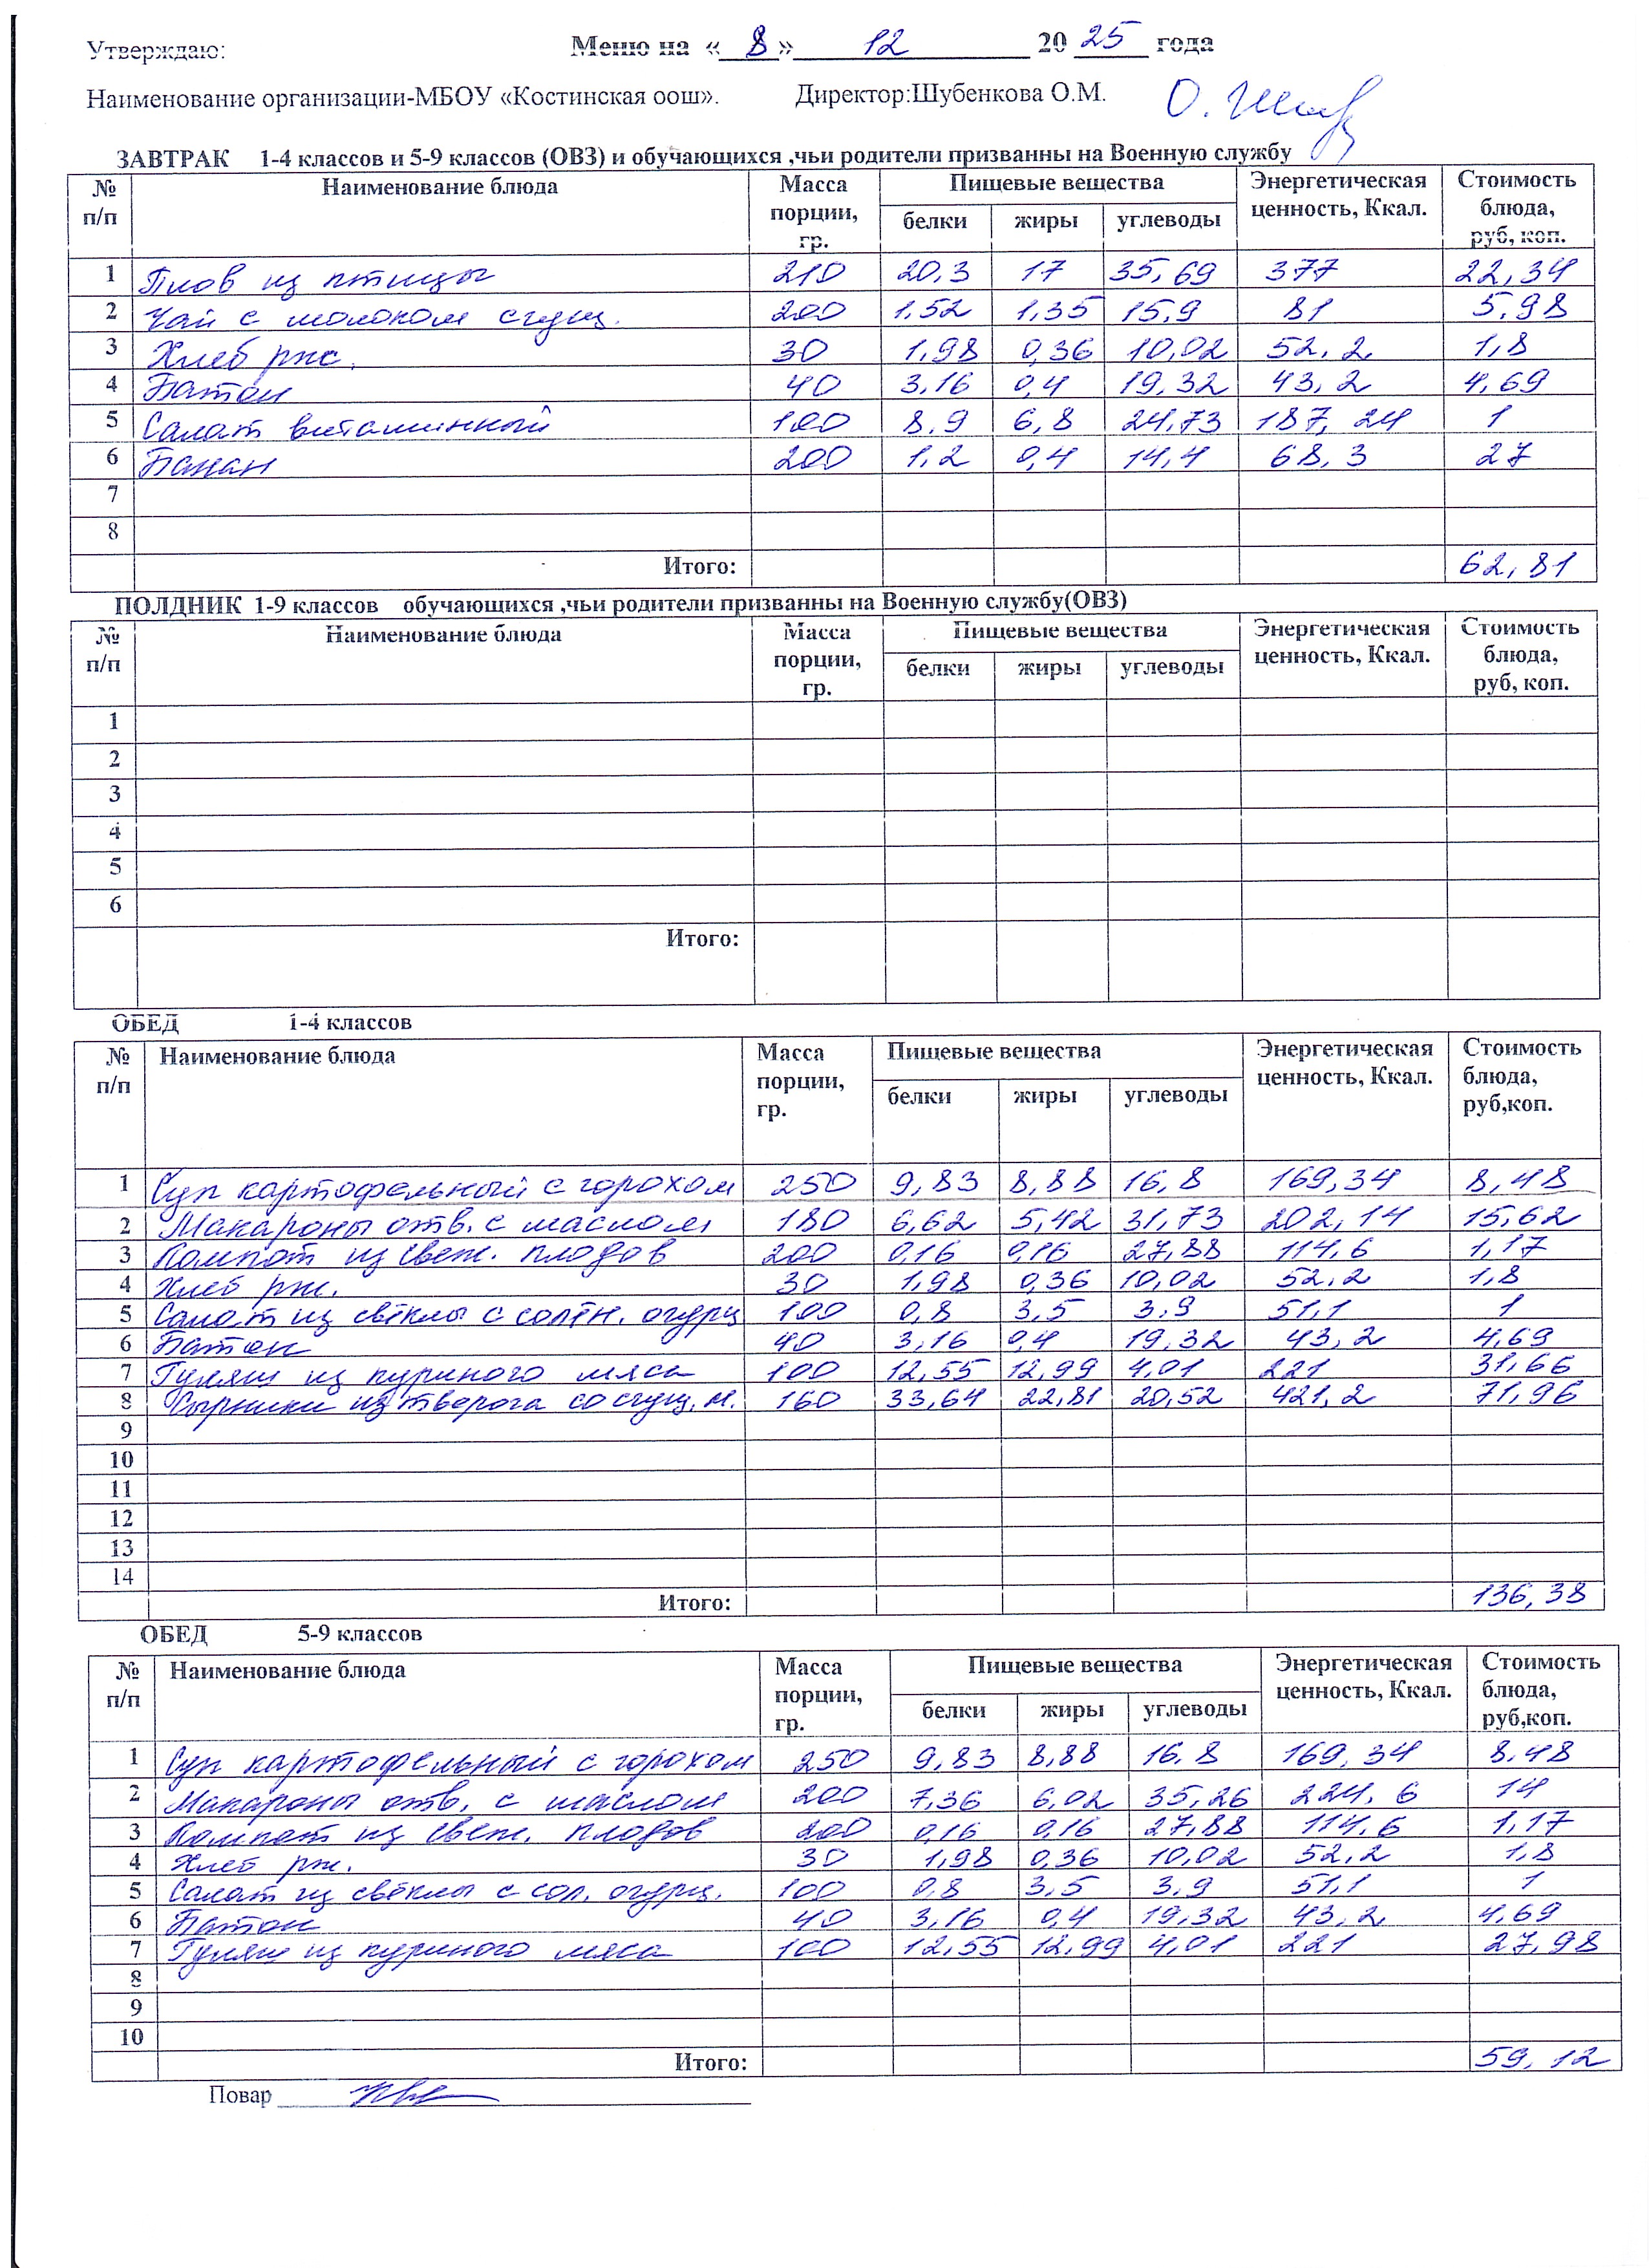 Утверждаю: Меню на «8» 12 20 25 года
Наименование организации-МБОУ «Костинская оош». Директор:Шубенкова О.М.
ЗАВТРАК 1-4 классов и 5-9 классов (ОВЗ) и обучающихся ,чьи родители призванны на Военную службу
№ п/п Наименование блюда Масса порции, гр. Пищевые вещества белки жиры углеводы Энергетическая ценность, Ккал. Стоимость блюда, руб, коп.
1 Плов из птицы 210 20,3 17 35,69 377 22,34
2 Чай с молоком сгущ. 200 1,52 1,35 15,9 81 5,98
3 Хлеб рж. 30 1,98 0,36 10,02 52,2 1,8
4 Батон 40 3,16 0,4 19,32 43,2 4,69
5 Салат витаминный 100 8,9 6,8 24,73 187,24 1
6 Банан 200 1,2 0,4 14,4 68,3 27
7
8
Итого: 62,81
ПОЛДНИК 1-9 классов обучающихся ,чьи родители призванны на Военную службу(ОВЗ)
№ п/п Наименование блюда Масса порции, гр. Пищевые вещества белки жиры углеводы Энергетическая ценность, Ккал. Стоимость блюда, руб, коп.
1
2
3
4
5
6
Итого:
ОБЕД 1-4 классов
№ п/п Наименование блюда Масса порции, гр. Пищевые вещества белки жиры углеводы Энергетическая ценность, Ккал. Стоимость блюда, руб,коп.
1 Суп картофельный с горохом 250 9,83 8,88 16,8 169,34 8,48
2 Макароны отв. с маслом 180 6,62 5,42 31,73 202,14 15,62
3 Компот из свеж. плодов 200 0,16 0,16 27,88 114,6 1,17
4 Хлеб рж. 30 1,98 0,36 10,02 52,2 1,8
5 Салат из свёклы с солён. огурц 100 0,8 3,5 3,9 51,1 1
6 Батон 40 3,16 0,4 19,32 43,2 4,69
7 Гуляш из куриного мяса 100 12,55 12,99 4,01 221 31,66
8 Сырники из творога со сгущ. м. 160 33,64 22,81 20,52 421,2 71,96
9
10
11
12
13
14
Итого: 136,38
ОБЕД 5-9 классов
№ п/п Наименование блюда Масса порции, гр. Пищевые вещества белки жиры углеводы Энергетическая ценность, Ккал. Стоимость блюда, руб,коп.
1 Суп картофельный с горохом 250 9,83 8,88 16,8 169,34 8,48
2 Макароны отв. с маслом 200 7,36 6,02 35,26 224,6 14
3 Компот из свеж. плодов 200 0,16 0,16 27,88 114,6 1,17
4 Хлеб рж. 30 1,98 0,36 10,02 52,2 1,8
5 Салат из свёклы с сол. огурц. 100 0,8 3,5 3,9 51,1 1
6 Батон 40 3,16 0,4 19,32 43,2 4,69
7 Гуляш из куриного мяса 100 12,55 12,99 4,01 221 27,98
8
9
10
Итого: 59,12
Повар